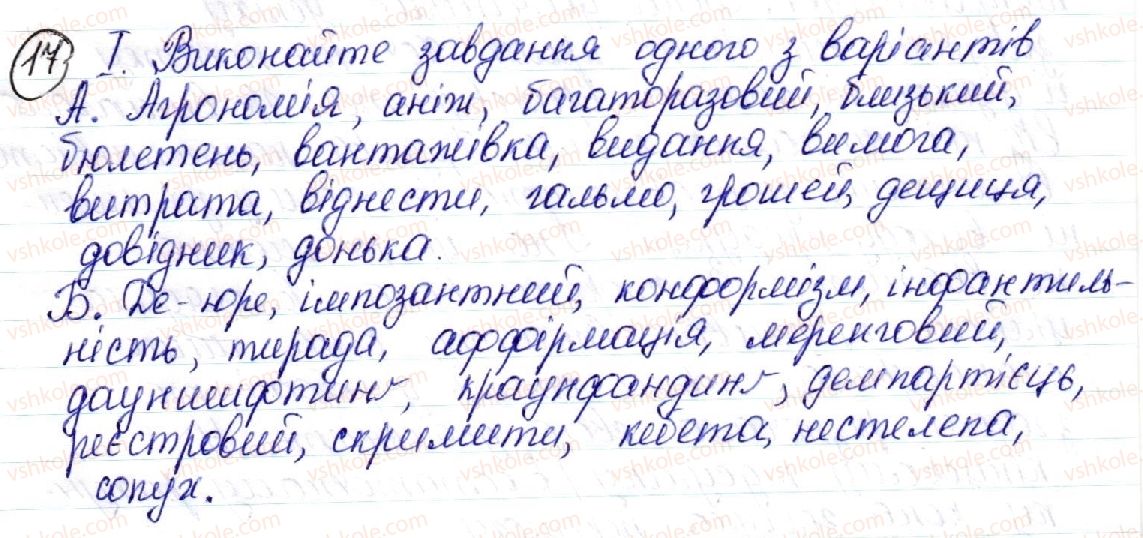 17 І. Виконайте завдання одного з варіантів
А. Агрономія, аніж, багаторазовий, близький,
бюлетень, вантажівка, видання, вимога,
витрата, віднести, гальмо, грошей, дещиця,
довідник, донька.
Б. Де-юре, імпозантний, конформізм, інфантиль-
ність, тирада, аффірмація, меренговий,
дауншифтинг, краунфандинг, демпартієць,
реєстровий, скримити, кебета, нестелепа,
сопух.